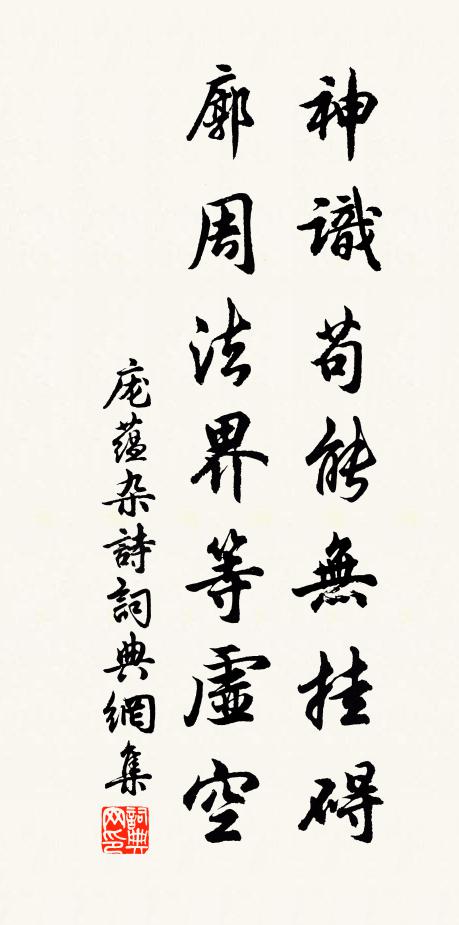 神識苟能無挂碍
廓周法界等虛空
庞蕴杂詩詞典網集
詞典网印